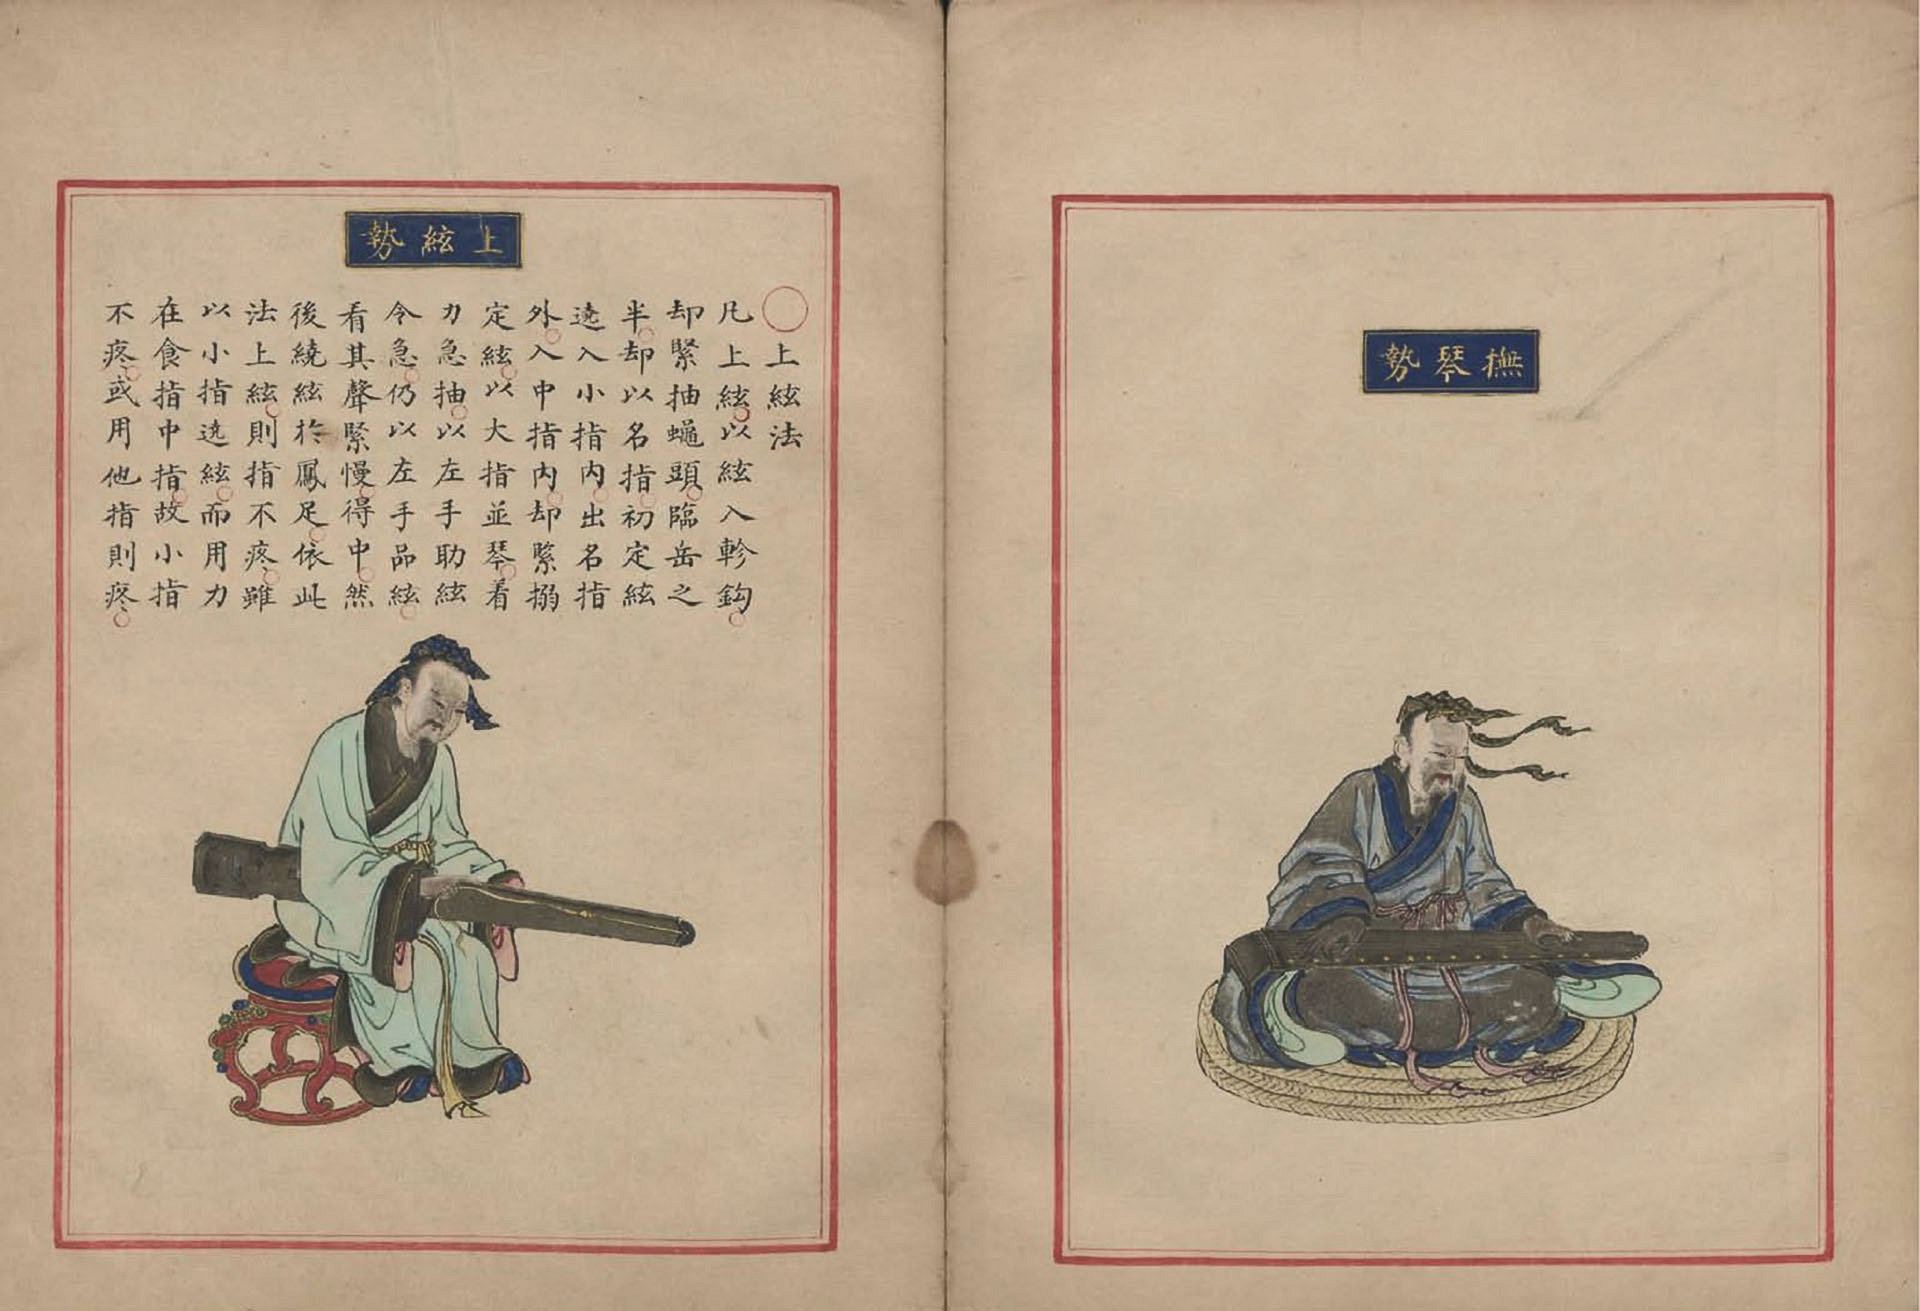 撫琴勢
上絃勢
上絃法
凡上絃以絃入軫鈎
却緊抽蠅頭臨岳之
半却以名指初定絃
遶入小指内出名指
外入中指内却緊搦
定絃以大指並琴着
力急抽以左手助絃
令急仍以左手品絃
看其聲緊慢得中然
後繞絃於鳳足依此
法上絃則指不疼雖
以小指遶絃而用力
在食指中指故小指
不疼或用他指則疼